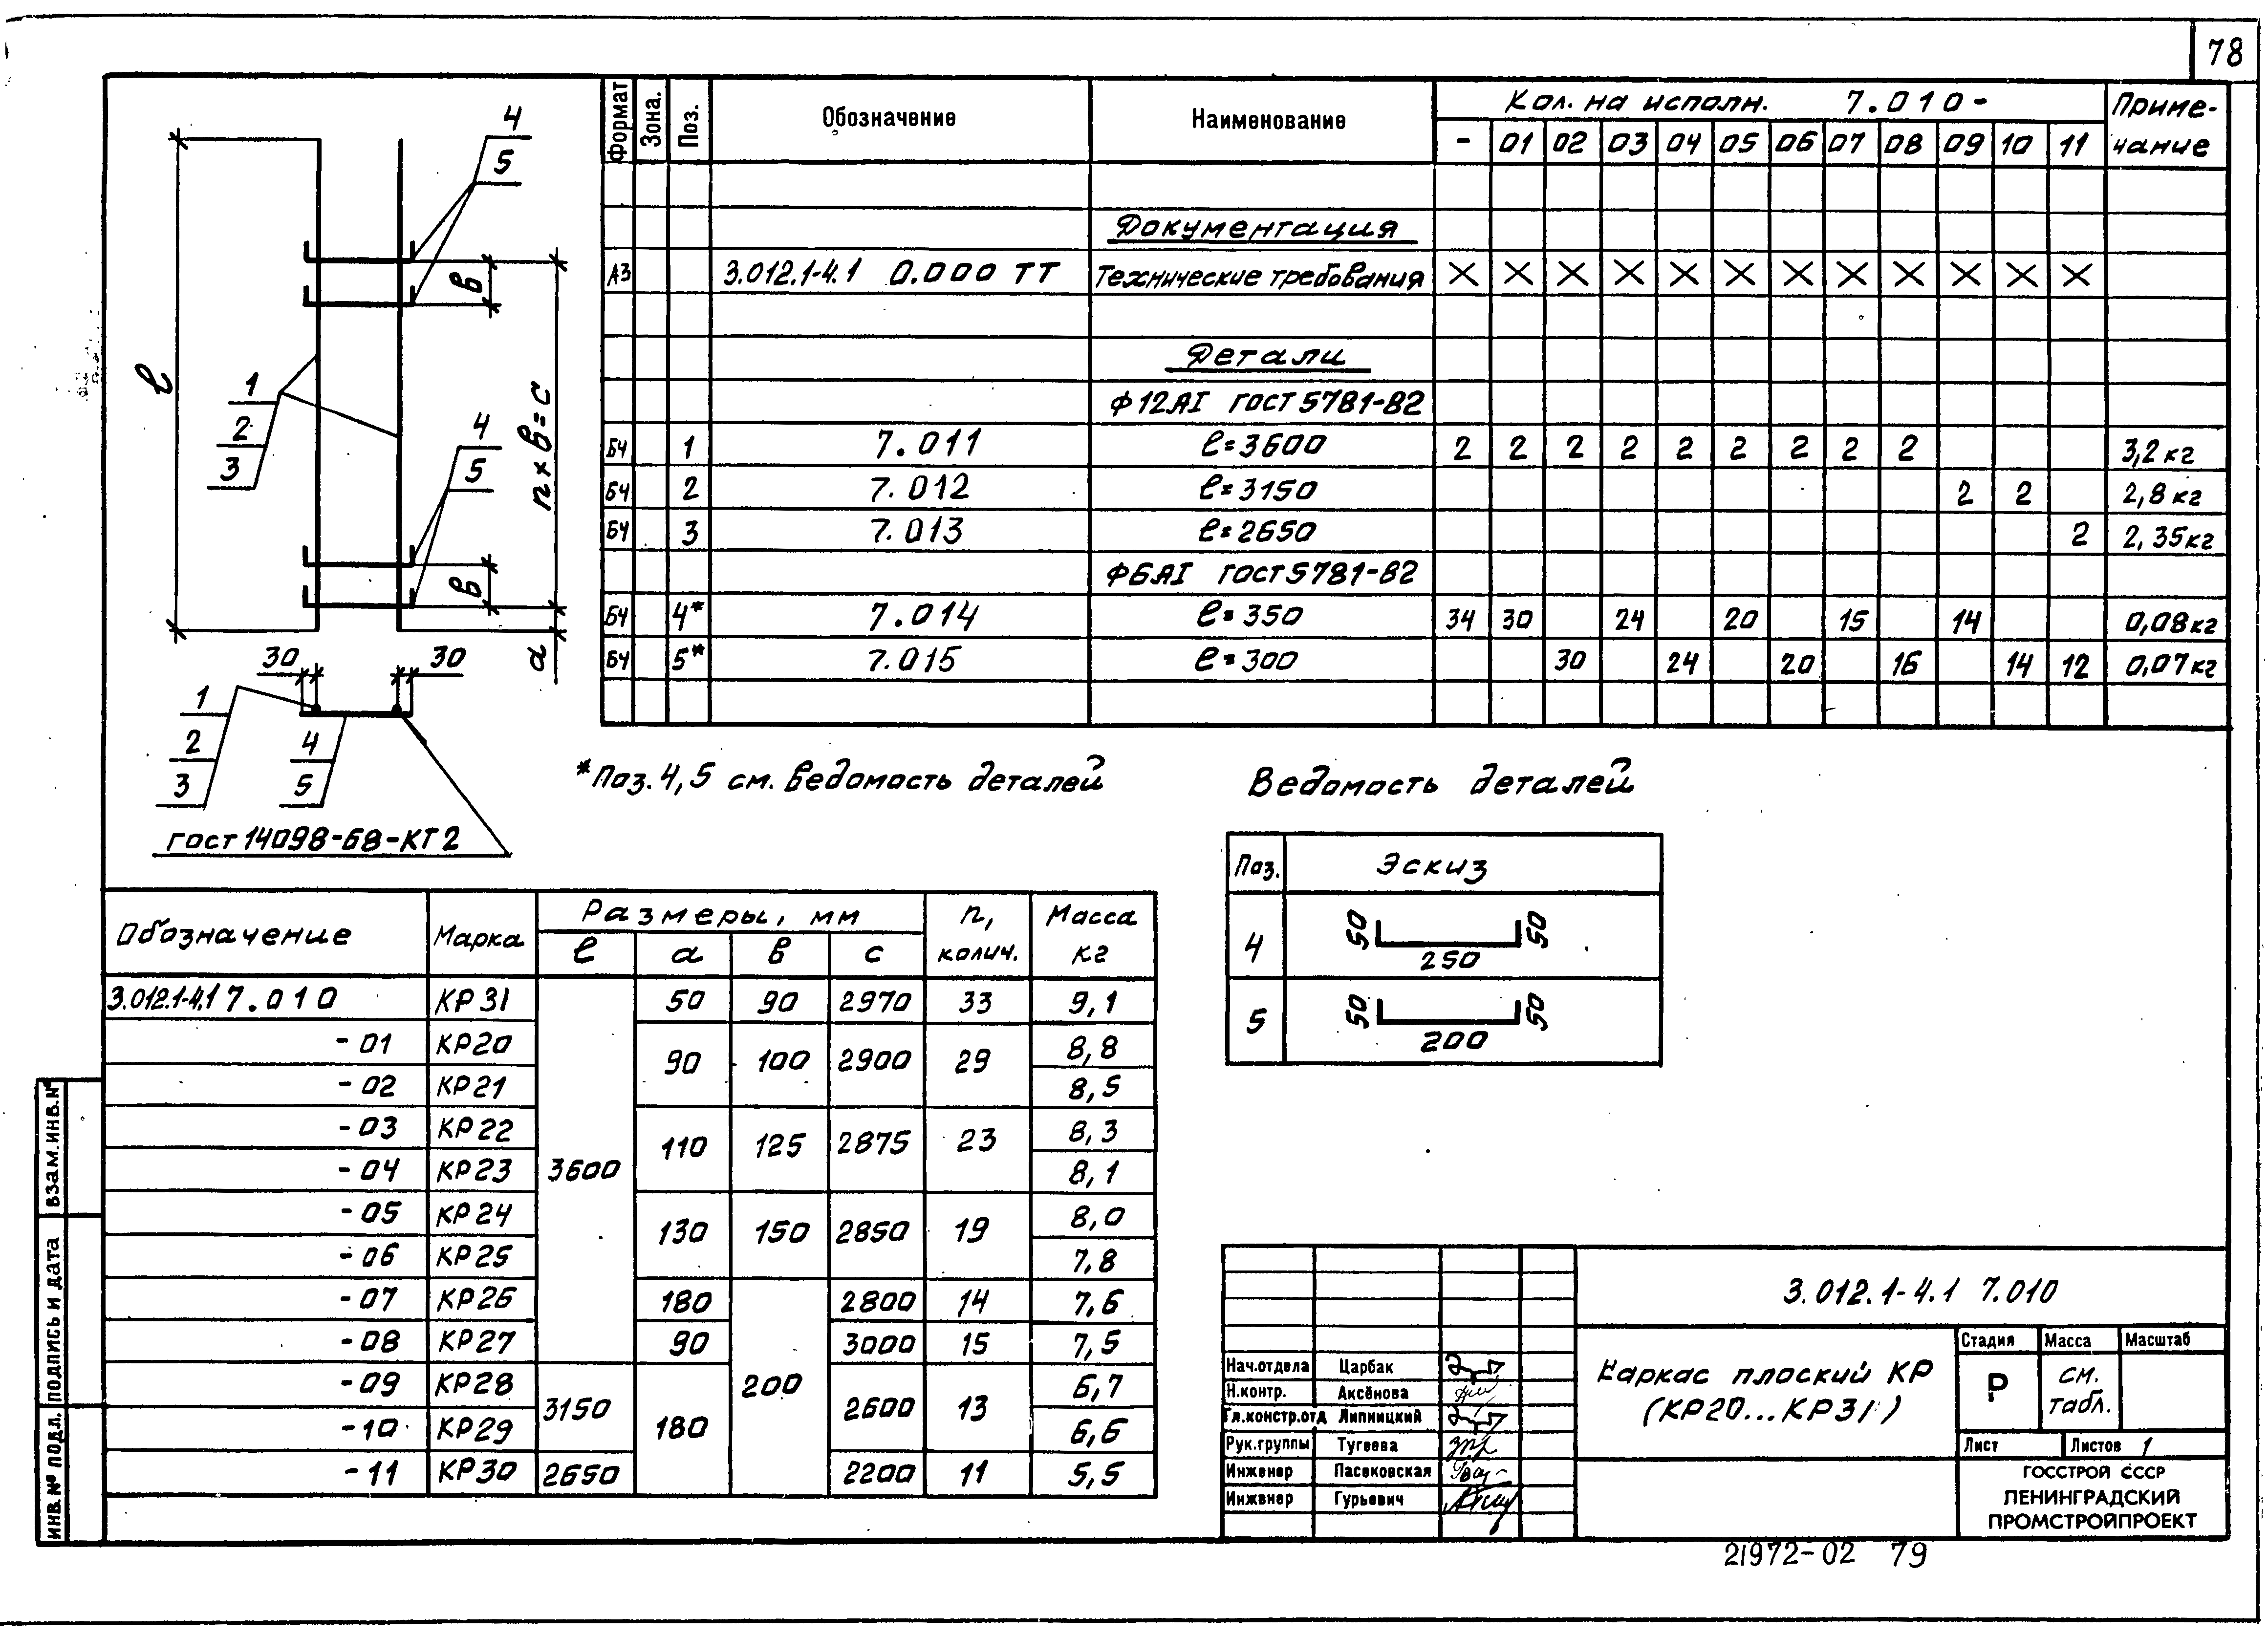 78
Формат Зона. Поз. Обозначение Наименование Кол. на исполн. 7.010- Приме-
чание
- 01 02 03 04 05 06 07 08 09 10 11
Документация
А3 3.012.1-4.1 0.000 ТТ Технические требования X X X X X X X X X X X X
Детали
Ф12АI ГОСТ 5781-82
БЧ 1 7.011 ℓ=3600 2 2 2 2 2 2 2 2 2 3,2 кг
БЧ 2 7.012 ℓ=3150 2 2 2,8 кг
БЧ 3 7.013 ℓ=2650 2 2,35 кг
Ф6АI ГОСТ 5781-82
БЧ 4* 7.014 ℓ=350 34 30 24 20 15 14 0,08 кг
БЧ 5* 7.015 ℓ=300 30 24 20 16 14 12 0,07 кг
4
5
ℓ
в
1
2
3
4
5
n×в=с
в
а
30 30
1
2
3
4
5
ГОСТ 14098-68-КТ2
*Поз. 4,5 см. ведомость деталей
Ведомость деталей
Поз. Эскиз
4 50 250 50
5 50 200 50
Обозначение Марка Размеры, мм n, колич. Масса кг
ℓ а в с
3.012.1-4.1 7.010 КР31 3600 50 90 2970 33 9,1
-01 КР20 90 100 2900 29 8,8
-02 КР21 8,5
-03 КР22 110 125 2875 23 8,3
-04 КР23 8,1
-05 КР24 130 150 2850 19 8,0
-06 КР25 7,8
-07 КР26 180 200 2800 14 7,6
-08 КР27 90 3000 15 7,5
-09 КР28 3150 180 2600 13 6,7
-10 КР29 6,6
-11 КР30 2650 2200 11 5,5
Взам.инв.№
Подпись и дата
Инв.№ подл.
3.012.1-4.1 7.010
Нач.отдела Царбак
Н.контр. Аксёнова
Гл.констр.отд Липницкий
Рук.группы Тугеева
Инженер Пасековская
Инженер Гурьевич
Каркас плоский КР
(КР20...КР31)
Стадия Масса Масштаб
Р см. табл.
Лист Листов 1
ГОССТРОЙ СССР
ЛЕНИНГРАДСКИЙ
ПРОМСТРОЙПРОЕКТ
21972-02 79